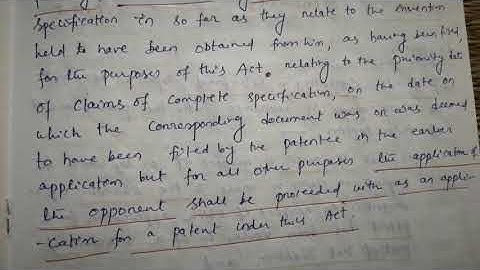 specification in so far as they relate to the invention
held to have been obtained from him, as having been filed,
for the purposes of this Act relating to the priority date
of claims of complete specification, on the date on
which the corresponding document was or was deemed
to have been filed by the patentee in the earlier
application but for all other purposes the application of
the opponent shall be proceeded with as an appli-
-cation for a patent under this Act.